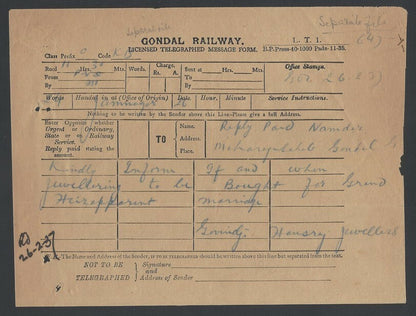 Separate file
GONDAL RAILWAY. L. T. 1.
LICENSED TELEGRAPHED MESSAGE FORM. B.P.Press-10-1099 Pads-11-35.
Class Prefix Code
Recd at Hrs. Mts. Charge Rs. A. Sent at Hrs. Mts. Office Stamps.
From To
By By
Words Handed in at (Office of Origin) Date Hour Minute Service Instructions.
Nothing to be written by the Sender above this Line-Please give a full Address.
Enter Opposite whether Urgent or Ordinary, State or Railway Service. Reply paid mating the amount. TO Name, Address. Reply Paid Namdar
Maharajasaheb Gondal
Kindly Inform If and when
jewellering to be Bought for Grand
Heirapparent marriage
Govindji Jewellers
26-2-37
N.B. The Name and Address of the Sender, if to be TELEGRAPHED should be written above this line but separated from the text.
NOT TO BE TELEGRAPHED Signature and Address of Sender